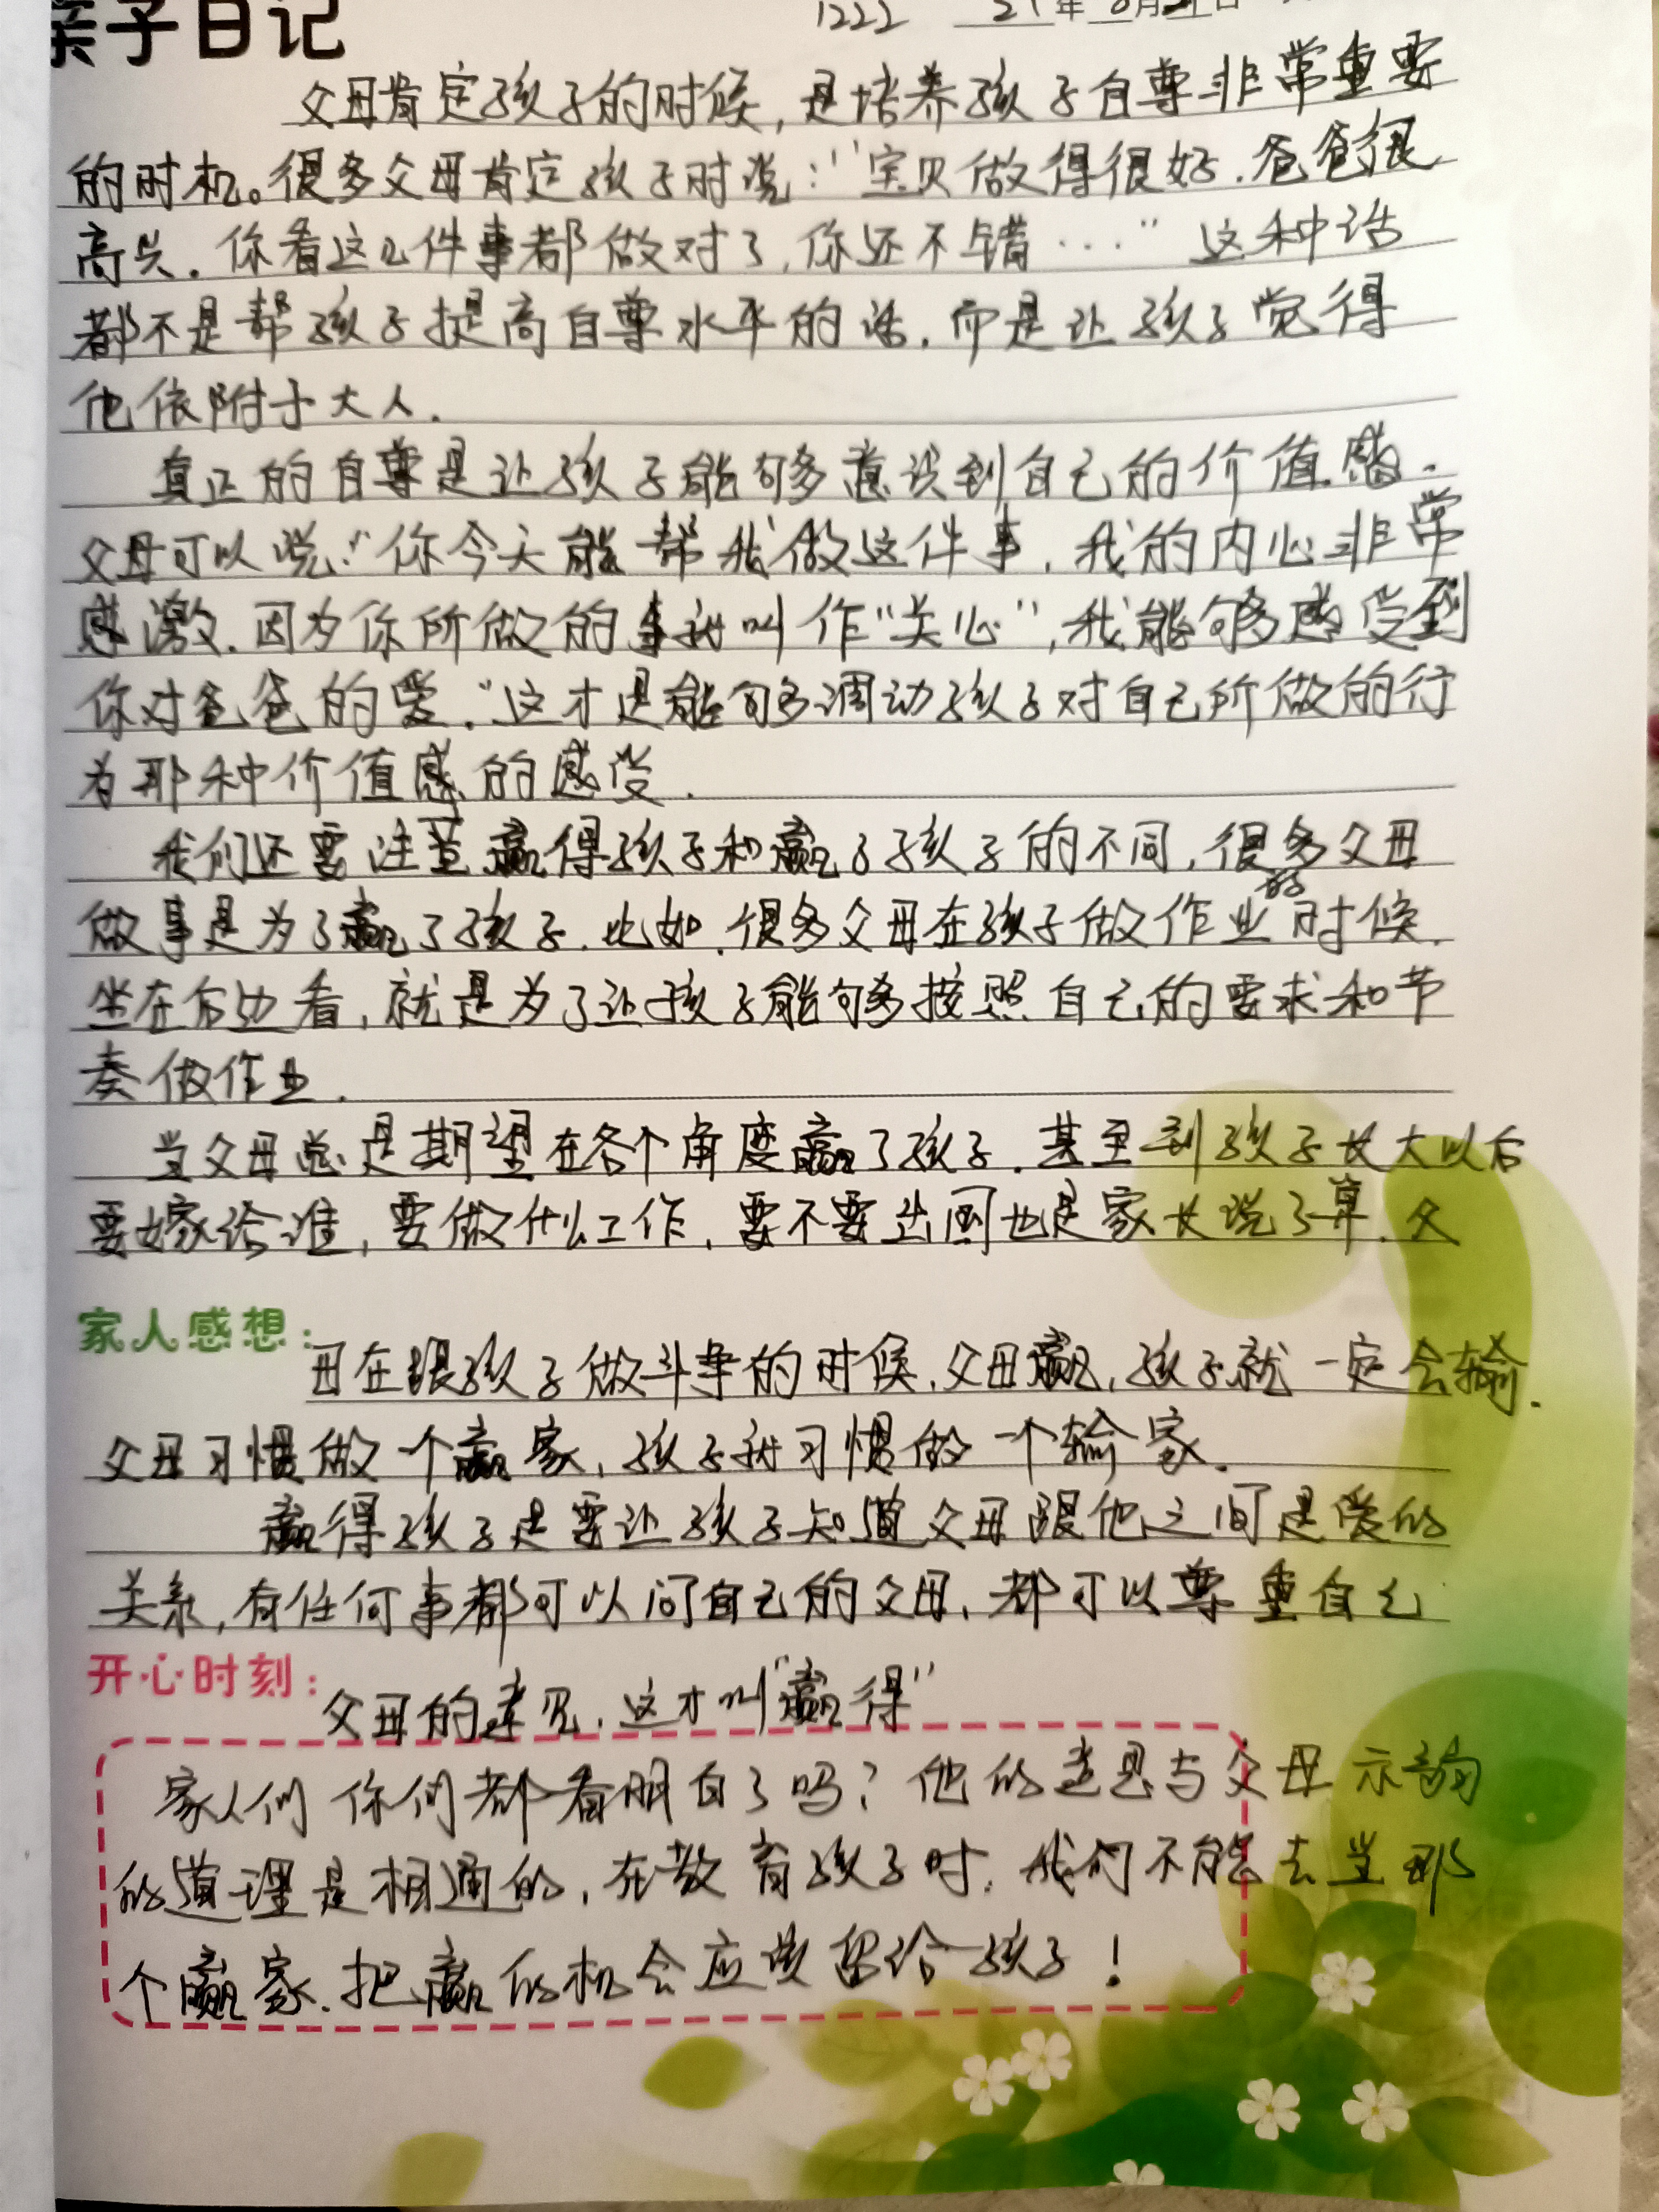 亲子日记
1222 21年8月21日
父母肯定孩子的时候，是培养孩子自尊非常重要
的时机。很多父母肯定孩子时说："宝贝做得很好.爸爸很
高兴.你看这几件事都做对了,你还不错…"这种话
都不是帮孩子提高自尊水平的话.而是让孩子觉得
他依附于大人.
真正的自尊是让孩子能够意识到自己的价值感.
父母可以说:"你今天能帮我做这件事,我的内心非常
感激.因为你所做的事就叫作"关心",我能够感受到
你对爸爸的爱."这才是能够调动孩子对自己所做的行
为那种价值感的感受.
我们还要注意赢得孩子和赢了孩子的不同,很多父母
做事是为了赢了孩子.比如.很多父母在孩子做作业的时候.
坐在后边看,就是为了让孩子能够按照自己的要求和节
奏做作业.
当父母总是期望在各个角度赢了孩子.甚至到孩子长大以后
要嫁给谁,要做什么工作,要不要出国也是家长说了算.父
家人感想：
母在跟孩子做斗争的时候.父母赢,孩子就一定会输.
父母习惯做一个赢家,孩子就习惯做一个输家.
赢得孩子是要让孩子知道父母跟他之间是爱的
关系,有任何事都可以问自己的父母,都可以尊重自己
开心时刻：
父母的意见,这才叫"赢得"
家人们 你们都看明白了吗?他的意思与父母示弱
的道理是相通的,在教育孩子时,我们不能去当那
个赢家.把赢的机会应该留给孩子!